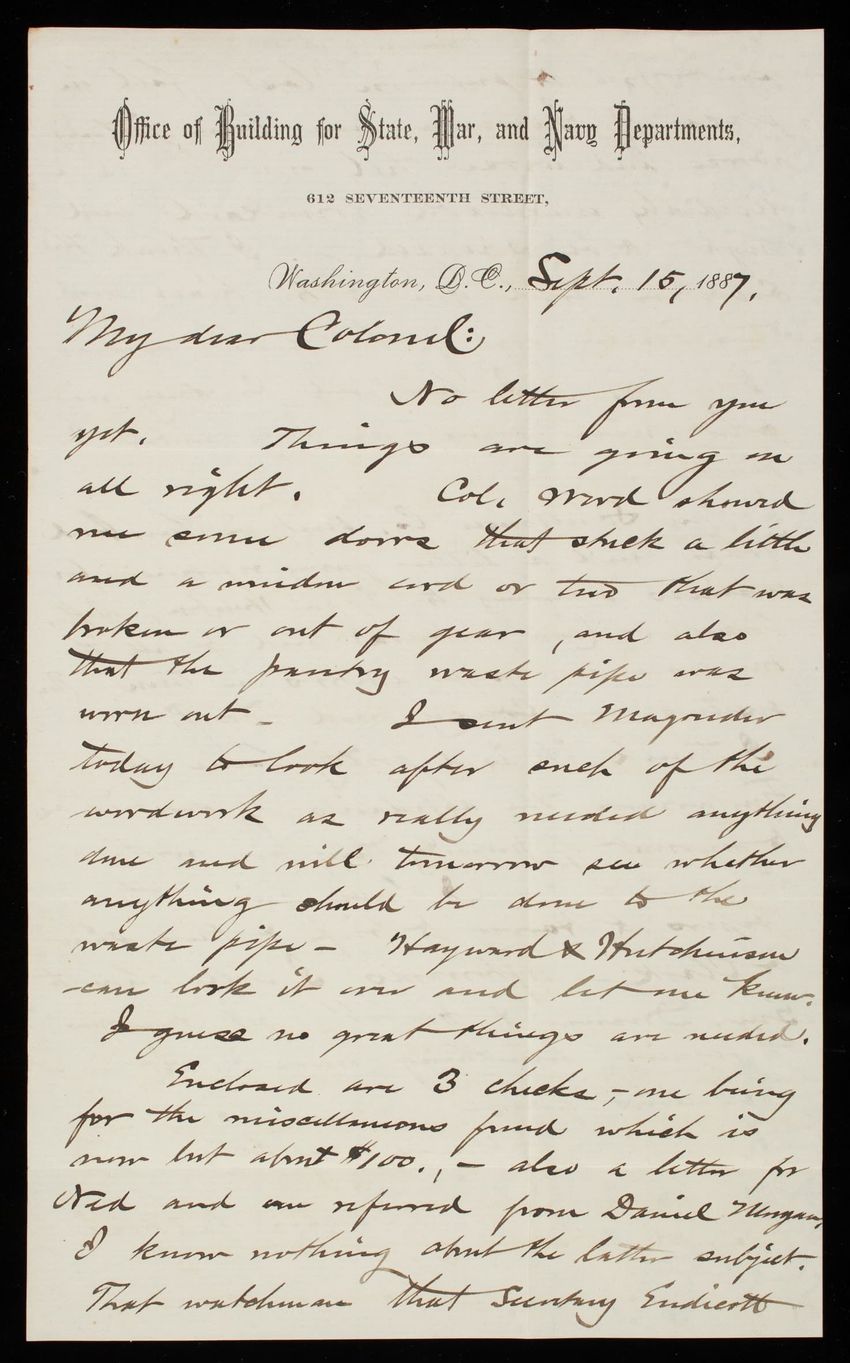 Office of Building for State, War, and Navy Departments,
612 SEVENTEENTH STREET,
Washington, D.C., Sept. 15, 1887.
My dear Colonel:
No letter from you
yet. Things are going on
all right. Col. Word showed
me some doors that stuck a little
and a window cord or two that was
broken or out of gear, and also
that the pantry waste pipe was
worn out - I sent Magruder
today to look after such of the
woodwork as really needed anything
done and will tomorrow see whether
anything should be done to the
waste pipe - Hayward & Hutchinson
can look it over and let me know.
I guess no great things are needed.
Enclosed are 3 checks, - one being
for the miscellaneous fund which is
now but about $100., - also a letter for
Ned and one referred from Daniel
I know nothing about the latter subject.
That watchman that Secretary Endicott